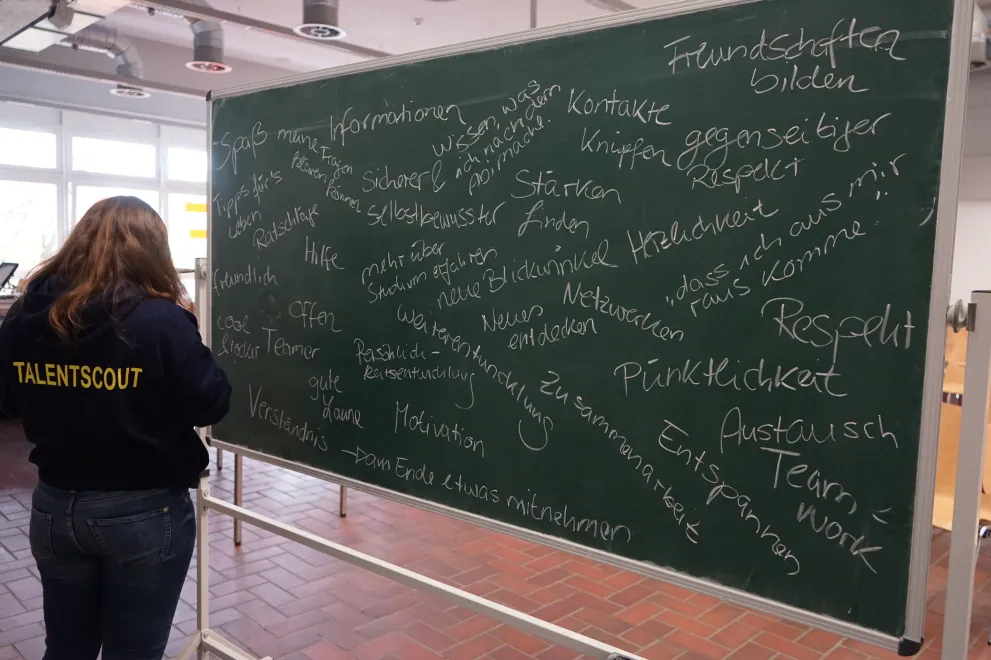 Freundschaften
bilden
Spaß
meine Fragen
können
Informationen
wissen, was
ich nach dem
Kontakte
Knüpfen
gegenseitiger
Respekt
Tipps für's
Leben
Ratschläge
Sicherer &
selbstbewusster
Stärken
finden
Herzlichkeit
„dass ich aus mir
raus komme."
freundlich
Hilfe
mehr über
Studium erfahren
neue Blickwinkel
Netzwerken
Offen
cool
& locker
Teamer
Neues
entdecken
Weiterentwicklung
Respekt
Persönlich-
keitsentwicklung
Pünktlichkeit
gute
Laune
Verständnis
Motivation
Zusammenarbeit
Entspannen
Austausch
Team-
work
→ am Ende etwas mitnehmen
TALENTSCOUT